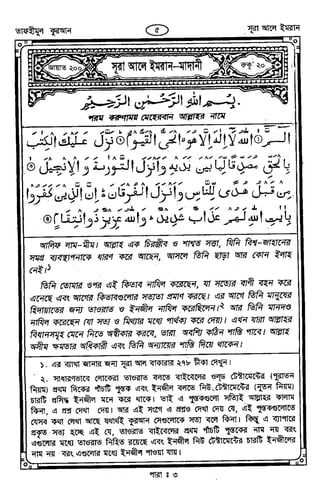 তাফহীমুল কুরআন
৫
সূরা আলে ইমরান
আয়াত ২০০
সূরা আলে ইমরান-মাদানী
রুকূ' ২০
بِسْمِ اللهِ الرَّحْمٰنِ الرَّحِيْمِ
পরম করুণাময় মেহেরবান আল্লাহর নামে
الٓمّٓ ① اللهُ لَآ اِلٰهَ اِلَّا هُوَ ۙ الْحَىُّ الْقَيُّوْمُ ② نَزَّلَ عَلَيْكَ الْكِتٰبَ
بِالْحَقِّ مُصَدِّقًا لِّمَا بَيْنَ يَدَيْهِ وَاَنْزَلَ التَّوْرٰىةَ وَالْاِنْجِيْلَ ③
مِنْ قَبْلُ هُدًى لِّلنَّاسِ وَاَنْزَلَ الْفُرْقَانَ ۬ اِنَّ الَّذِيْنَ كَفَرُوْا
بِاٰيٰتِ اللهِ لَهُمْ عَذَابٌ شَدِيْدٌ ۗ وَاللهُ عَزِيْزٌ ذُو انْتِقَامٍ ④
আলিফ লাম-মীম। আল্লাহ এক চিরঞ্জীব ও শাশ্বত সত্তা, যিনি বিশ্ব-জাহানের
সমগ্র ব্যবস্থাপনাকে ধারণ করে আছেন, আসলে তিনি ছাড়া আর কোন ইলাহ
নেই।১
তিনি তোমার ওপর এই কিতাব নাযিল করেছেন, যা সত্যের বাণী বহন করে
এনেছে এবং আগের কিতাবগুলোর সত্যতা প্রমাণ করছে। এর আগে তিনি মানুষের
হিদায়াতের জন্য তাওরাত ও ইনজীল নাযিল করেছিলেন।২ আর তিনি মানদণ্ড
নাযিল করেছেন (যা সত্য ও মিথ্যার মধ্যে পার্থক্য করে দেয়)। এখন যারা আল্লাহর
বিধানসমূহ মেনে নিতে অস্বীকার করবে, তারা অবশ্যি কঠিন শাস্তি পাবে। আল্লাহ
অসীম ক্ষমতার অধিকারী এবং তিনি অন্যায়ের শাস্তি দিয়ে থাকেন।
১. এর ব্যাখ্যা জানার জন্য সূরা আল বাকারার ২৭৮ টীকা দেখুন।
২. সাধারণভাবে লোকেরা তাওরাত বলতে বাইবেলের ওল্ড টেস্টামেন্টের (পুরাতন
নিয়ম) প্রথম দিকের পাঁচটি পুস্তক এবং ইনজীল বলতে নিউ টেস্টামেন্টের (নূতন নিয়ম)
চারটি প্রসিদ্ধ ইনজীল মনে করে থাকে। তাই এ পুস্তকগুলো সত্যিই আল্লাহর কালাম
কিনা, এ প্রশ্ন দেখা দেয়। আর এই সংগে এ প্রশ্নও দেখা দেয় যে, এই পুস্তকগুলোতে
যেসব কথা লেখা আছে যথার্থই কুরআন সেগুলোকে সত্য বলে কিনা। কিন্তু এ ব্যাপারে
প্রকৃত সত্য হচ্ছে এই যে, তাওরাত বাইবেলের প্রথম পাঁচটি পুস্তকের নাম নয় বরং
এগুলোর মধ্যে তাওরাত নিহিত রয়েছে এবং ইনজীল নিউ টেস্টামেন্টের চারটি ইনজীলের
নাম নয় বরং এগুলোর মধ্যে ইনজীল পাওয়া যায়।
পারা : ৩